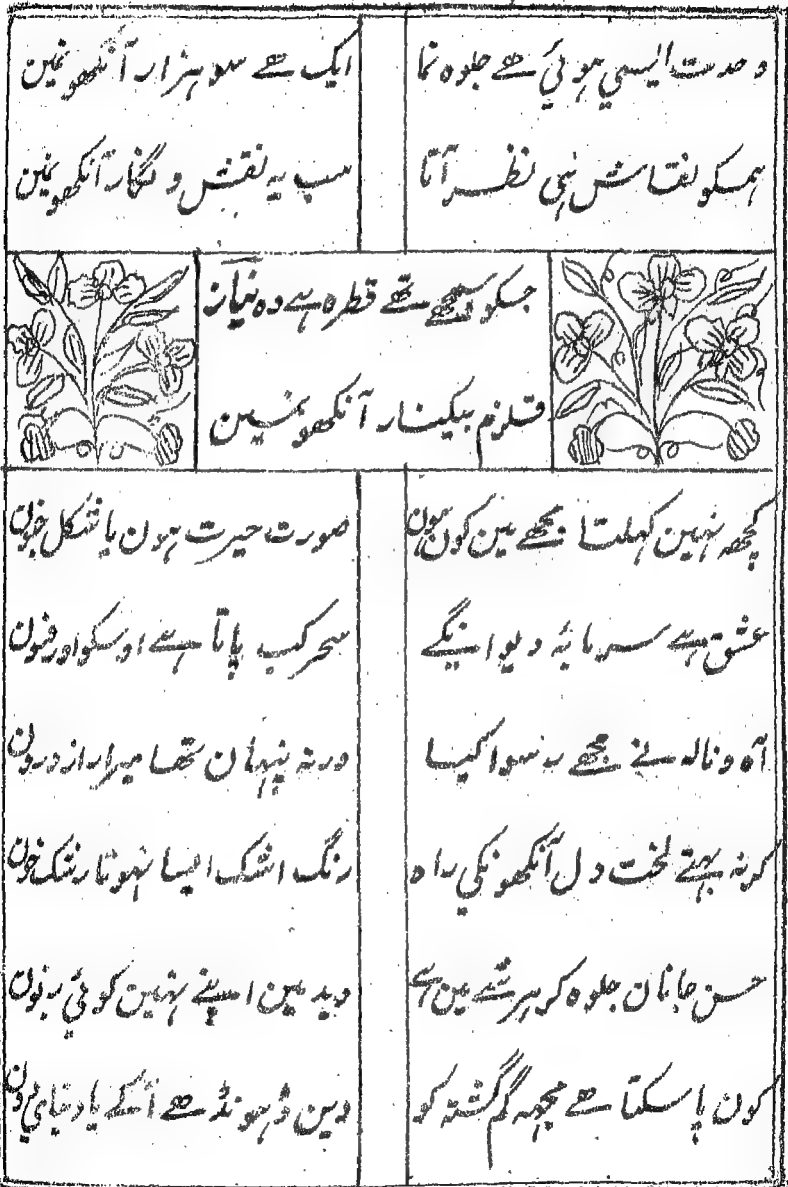 وحدت ایسي هوئي هے جلوه نما
ایک هے سو هزار آنکھو نمین
همسکو نقاش نہی نظر آتا
سب یہ نقش و نگار آنکھو نمین
جسکو سمجھے تھے قطره ہے ده نیاز
قلزم بیکنار آنکھو نمین
کچھ نہین کہلتا مجھے مین کون ہون
صورت حیرت ہون یا شکل جنون
عشق ہے سرمایۂ دیوانگے
سحر کب پاتا ہے اوسکو اور فنون
آه و نالہ نے مجھے رسوا کیا
ورنہ پنہان تھا میرا راز درون
گر نہ بہتے لخت دل آنکھونکي راه
رنگ اشک ایسا نہوتا رشک خون
حسن جانان جلوه گر ہر شے مین ہے
دید مین اپنے نہین کوئي
کون پا سکتا هے مجہہ گم گشتہ کو
دین ڈہونڈھے آنکے یاد